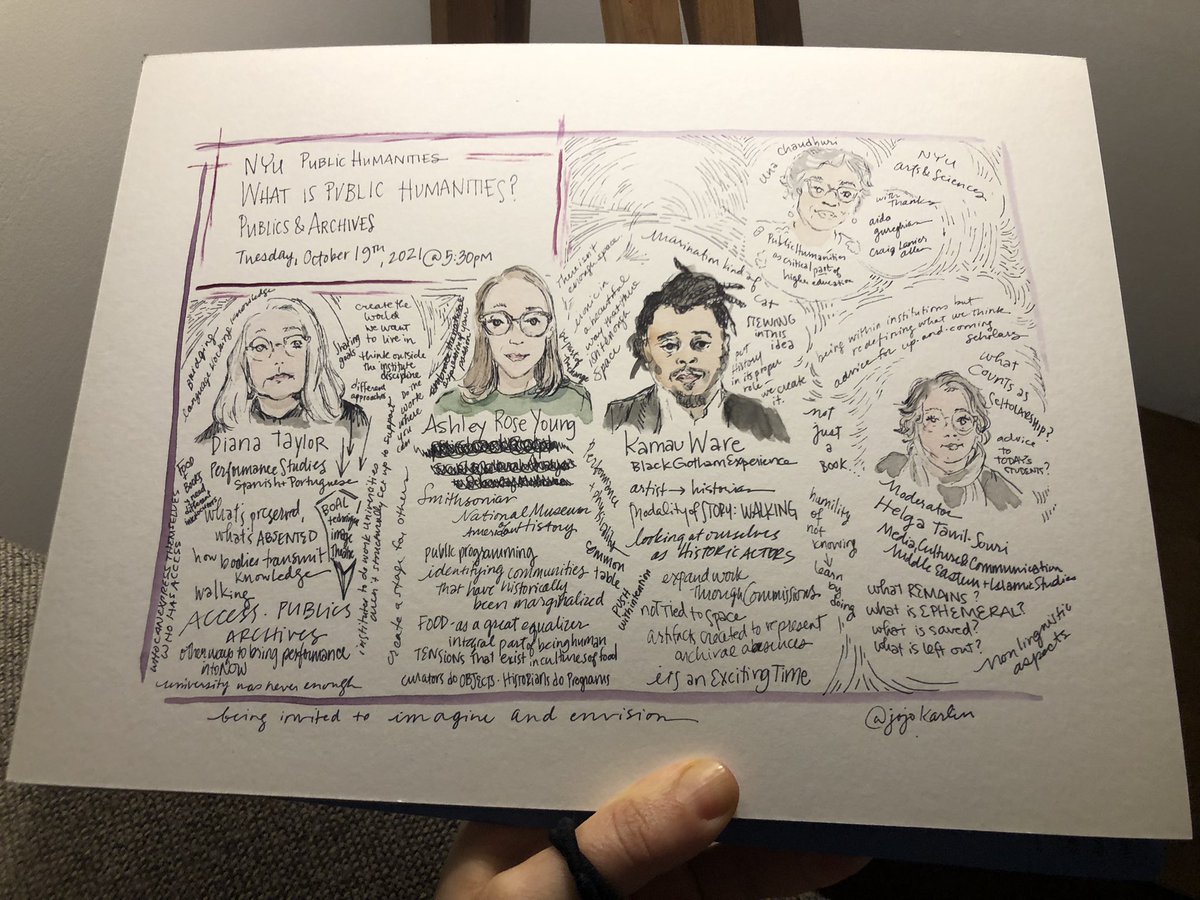 NYU PUBLIC HUMANITIES
WHAT IS PUBLIC HUMANITIES?
PUBLICS & ARCHIVES
Tuesday, October 19th, 2021 @ 5:30pm
una chaudhuri
NYU
arts & sciences
with
thanks
aida
gureghian
craig lanier
allen
@ Public Humanities
as critical part of
higher education
Bridging
language linking knowledge
create the
world
we want
to live in
think outside
the institute
discipline
different
approaches
Diana Taylor
Performance Studies
Spanish + Portuguese
what's preserved,
what's ABSENTED
how bodies transmit
knowledge
walking
ACCESS · PUBLICS
ARCHIVES
other ways to bring performance
into NOW
university was never enough
BOAL
technique
image
Theatre
FOOD
BOOKS
WHO CAN EXPRESS THEMSELVES
WHO HAS ACCESS
institutes to do work universities
aren't structurally set up to support
create a stage for others
do the
work
where
you
can
Ashley Rose Young
Smithsonian
National Museum
of
American History
public programming
identifying communities
that have historically
been marginalized
FOOD - as a great equalizer
integral part of being human
TENSIONS that exist in cultures of food
curators do OBJECTS · Historians do Programs
there isn't
enough space
space
performance
+ physicality
common
table
PUSH
with intention
marination kind of
cat
STEWING
IN THIS
idea
put
History
in its proper
role
we create
it.
Kamau Ware
Black Gotham Experience
artist → historian
modality of STORY: WALKING
looking at ourselves
as HISTORIC ACTORS
expand work
through commissions
not tied to space
artifact created to represent
archival absences
it's an Exciting Time
being within institutions but
redefining what we think
advice for up-and-coming
scholars
what
COUNTS as
SCHOLARSHIP?
advice
to
TODAY'S
STUDENTS?
not
just
a
BOOK.
humility
of
not
knowing
↓
learn
by
doing
Moderator
Helga Tawil-Souri
Media, Culture & Communication
Middle Eastern + Islamic Studies
what REMAINS?
what is EPHEMERAL?
what is saved?
what is left out?
nonlinguistic
aspects
being invited to imagine and envision
@jojokarlin